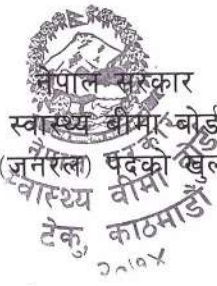 नेपाल सरकार
स्वास्थ्य बीमा बोर्ड
(जनरल) पदको
स्वास्थ्य बीमा बोर्ड
टेकु, काठमाडौं
२०७४